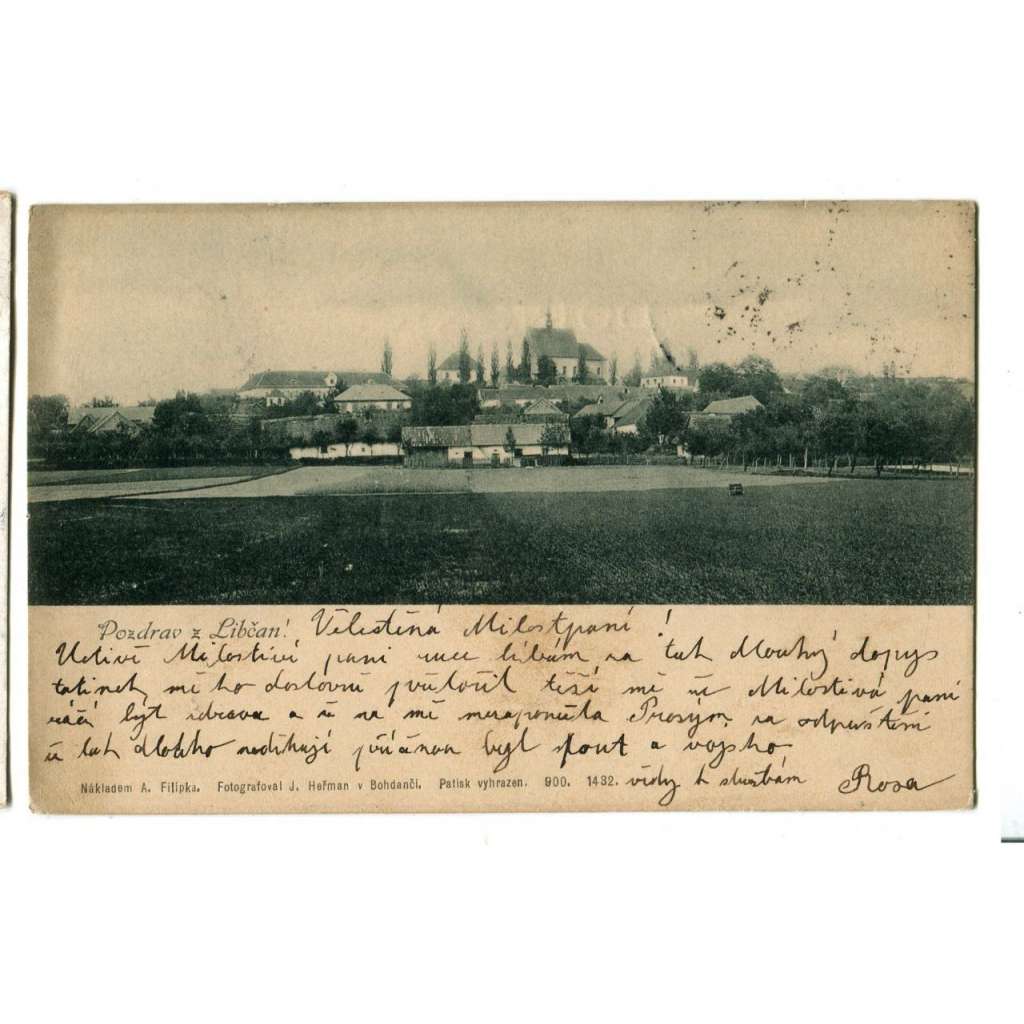 Pozdrav z Libčan! Velectěná Milostpaní!
Uctivě Milostivé paní ruce líbám, za tak dlouhý dopys
tatínek mě ho doslovně těší mě že Milostivá paní
ráčí být zdráva a že na mě nezapoměla Prosým za odpuštění
že tak dlouho neděkuji příčinou byl a vojsko
vždy k službám Rosa
Nákladem A. Filipka. Fotografoval J. Heřman v Bohdanči. Patisk vyhrazen. 900. 1432.